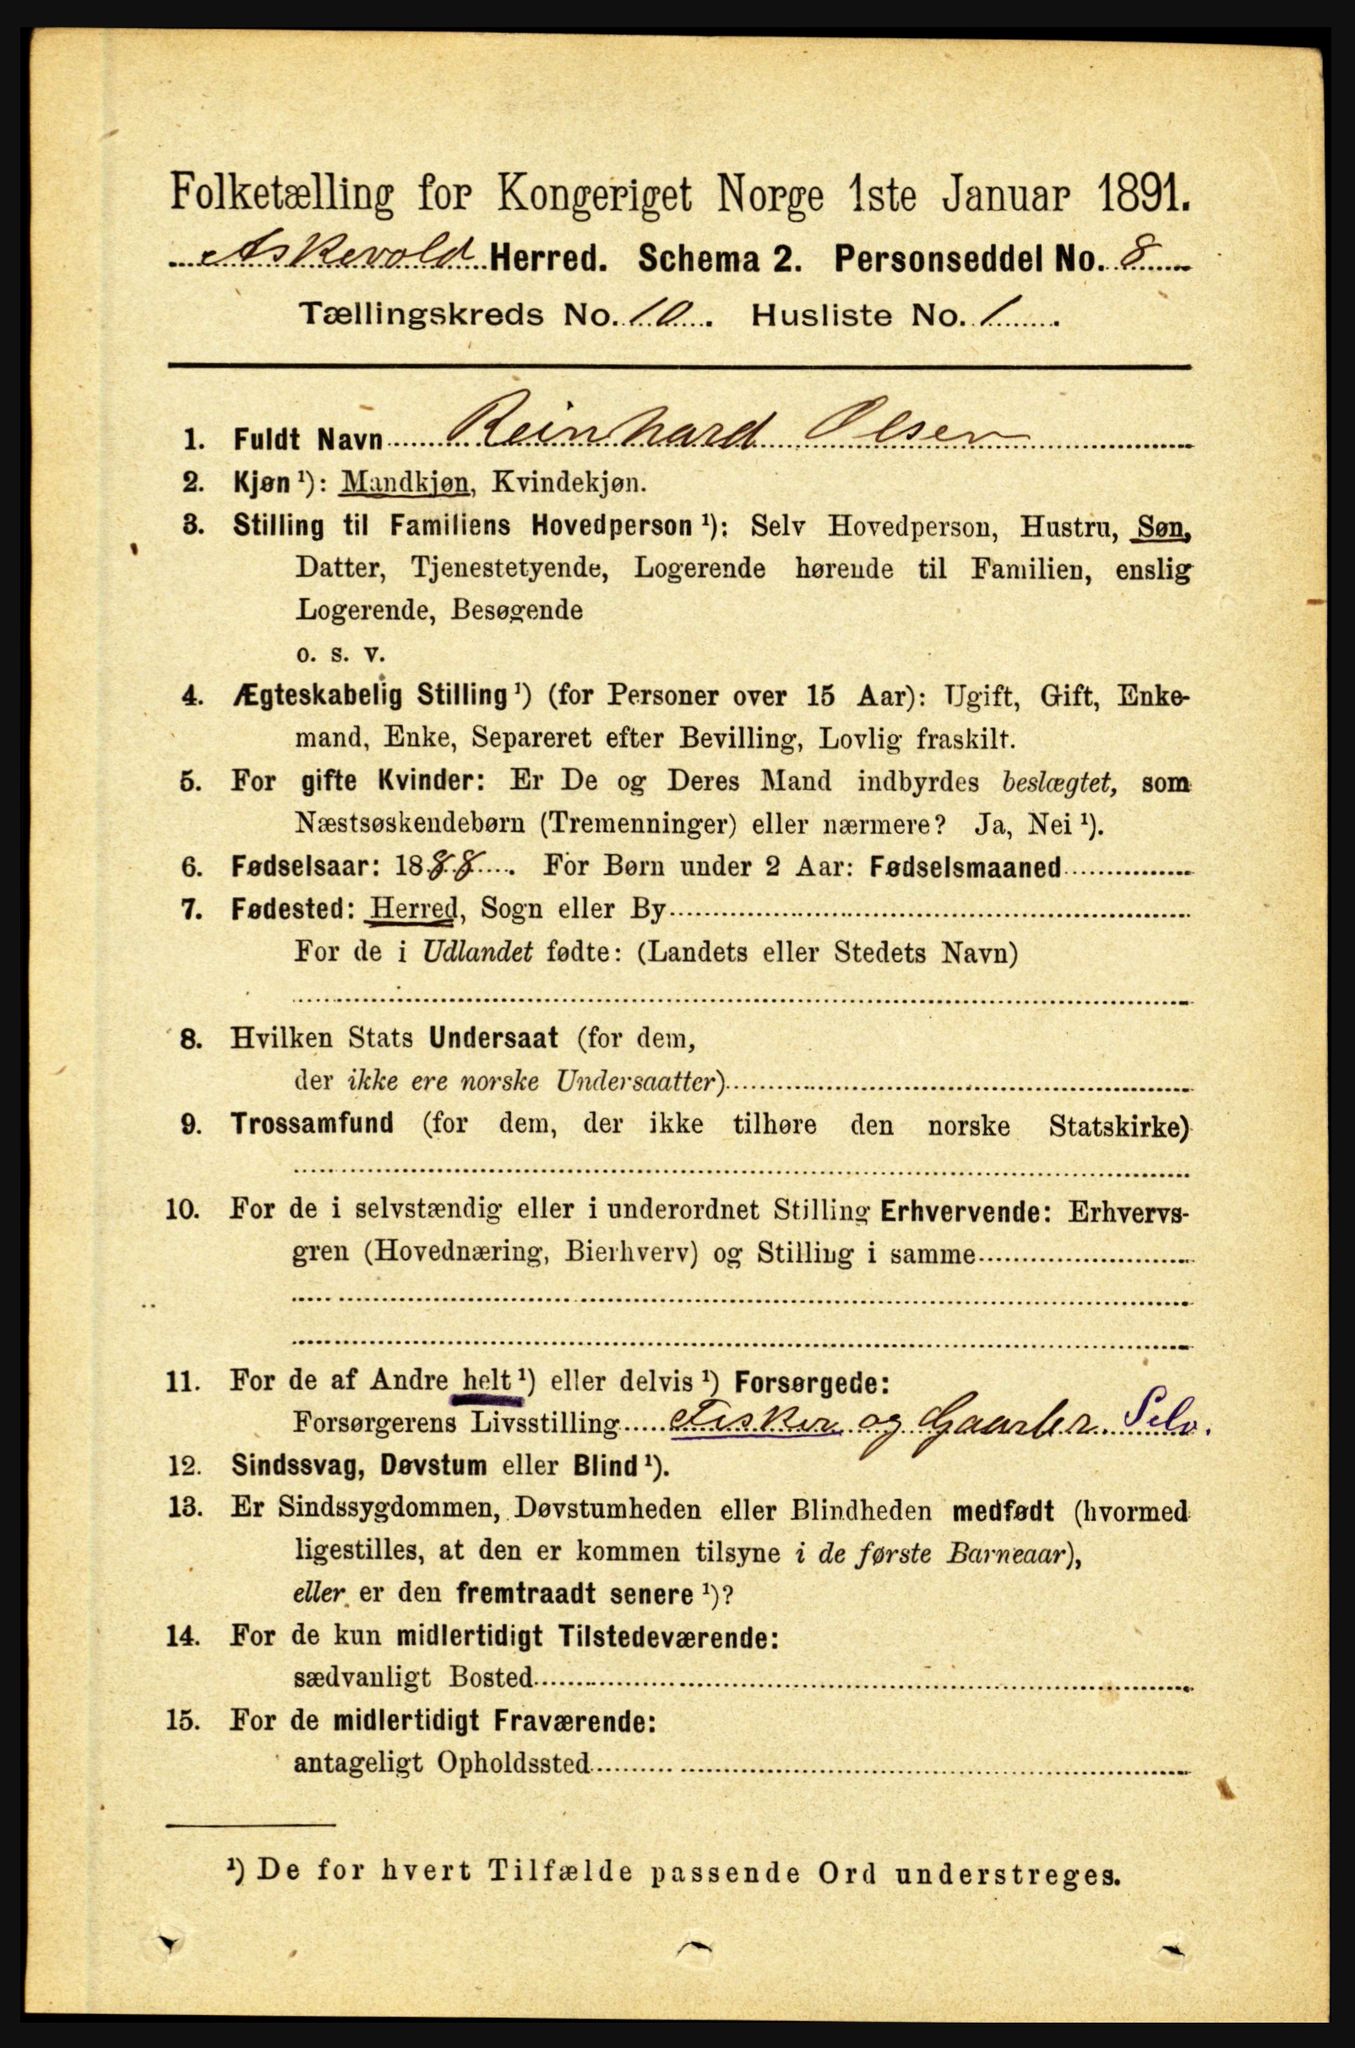 Folketælling for Kongeriget Norge 1ste Januar 1891.
Askevold Herred. Schema 2. Personseddel No. 8
Tællingskreds No. 10. Husliste No. 1.
1. Fuldt Navn Reinhard Olsen
2. Kjøn ¹): Mandkjøn, Kvindekjøn.
3. Stilling til Familiens Hovedperson ¹): Selv Hovedperson, Hustru, Søn,
Datter, Tjenestetyende, Logerende hørende til Familien, enslig
Logerende, Besøgende
o. s. v.
4. Ægteskabelig Stilling ¹) (for Personer over 15 Aar): Ugift, Gift, Enke-
mand, Enke, Separeret efter Bevilling, Lovlig fraskilt.
5. For gifte Kvinder: Er De og Deres Mand indbyrdes beslægtet, som
Næstsøskendebørn (Tremenninger) eller nærmere? Ja, Nei ¹).
6. Fødselsaar: 1888. For Børn under 2 Aar: Fødselsmaaned
7. Fødested: Herred, Sogn eller By
For de i Udlandet fødte: (Landets eller Stedets Navn)
8. Hvilken Stats Undersaat (for dem,
der ikke ere norske Undersaatter)
9. Trossamfund (for dem, der ikke tilhøre den norske Statskirke)
10. For de i selvstændig eller i underordnet Stilling Erhvervende: Erhvervs-
gren (Hovednæring, Bierhverv) og Stilling i samme
11. For de af Andre helt ¹) eller delvis ¹) Forsørgede:
Forsørgerens Livsstilling Fisker og Gaardbr. Selv.
12. Sindssvag, Døvstum eller Blind ¹).
13. Er Sindssygdommen, Døvstumheden eller Blindheden medfødt (hvormed
ligestilles, at den er kommen tilsyne i de første Barneaar),
eller er den fremtraadt senere ¹)?
14. For de kun midlertidigt Tilstedeværende:
sædvanligt Bosted
15. For de midlertidigt Fraværende:
antageligt Opholdssted
¹) De for hvert Tilfælde passende Ord understreges.